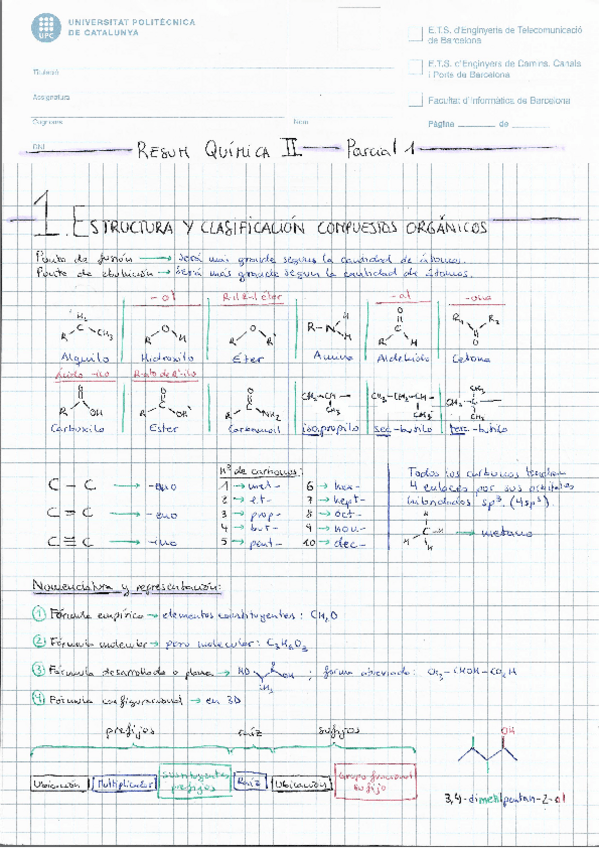 UNIVERSITAT POLITÈCNICA
DE CATALUNYA
UPC
E.T.S. d'Enginyeria de Telecomunicació
de Barcelona
E.T.S. d'Enginyers de Camins, Canals
i Ports de Barcelona
Facultat d'Informàtica de Barcelona
Titulació
Assignatura
Cognoms
Nom
Pàgina de
DNI
RESUM QUÍMICA II Parcial 1
1. ESTRUCTURA Y CLASIFICACIÓN COMPUESTOS ORGÁNICOS
Punto de fusión → será más grande según la cantidad de átomos.
Punto de ebullición → será más grande según la cantidad de átomos.
-ol
-al
-ona
Alquilo Hidroxilo Éter Amino Aldehído Cetona
Carboxilo Ester isopropilo sec-butilo terc-butilo
C - C → -ano
C = C → -eno
C ≡ C → -ino
nº de carbonos:
1 → met- 6 → hex-
2 → et- 7 → hept-
3 → prop- 8 → oct-
4 → but- 9 → non-
5 → pent- 10 → dec-
Todos los carbonos tendrán
4 enlaces por sus orbitales
hibridados sp³. (4sp³)
→ metano
Nomenclatura y representación:
1 Fórmula empírica → elementos constituyentes: CH₂O
2 Fórmula molecular → peso molecular: C₃H₆O₃
3 Fórmula desarrollada o plana → HO OH CH₃ ; forma abreviada: CH₃-CHOH-CO₂H
4 Fórmula configuracional → en 3D
prefijos raíz sufijos
Ubicación Multiplicador Sustituyentes prefijos Raíz Ubicación Grupo funcional sufijo
OH
3,4-dimetilpentan-2-ol